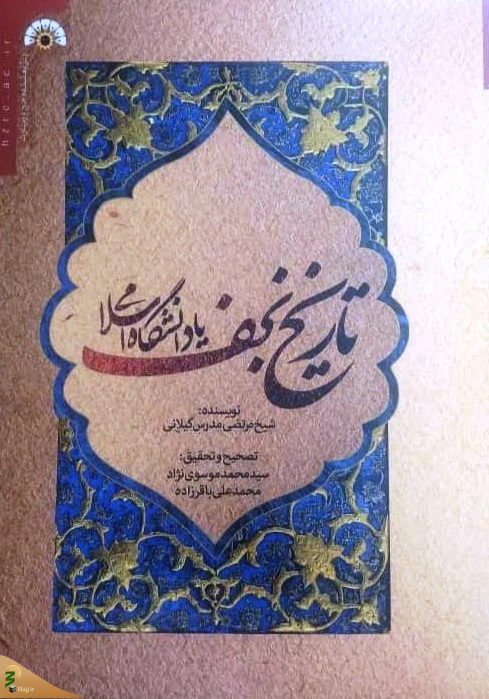 تاریخ نجف
یا دانشگاه اسلامی
نویسنده:
شیخ مرتضی مدرس گیلانی
تصحیح و تحقیق:
سید محمد موسوی نژاد
محمدعلی باقرزاده
hzrc.ac.ir